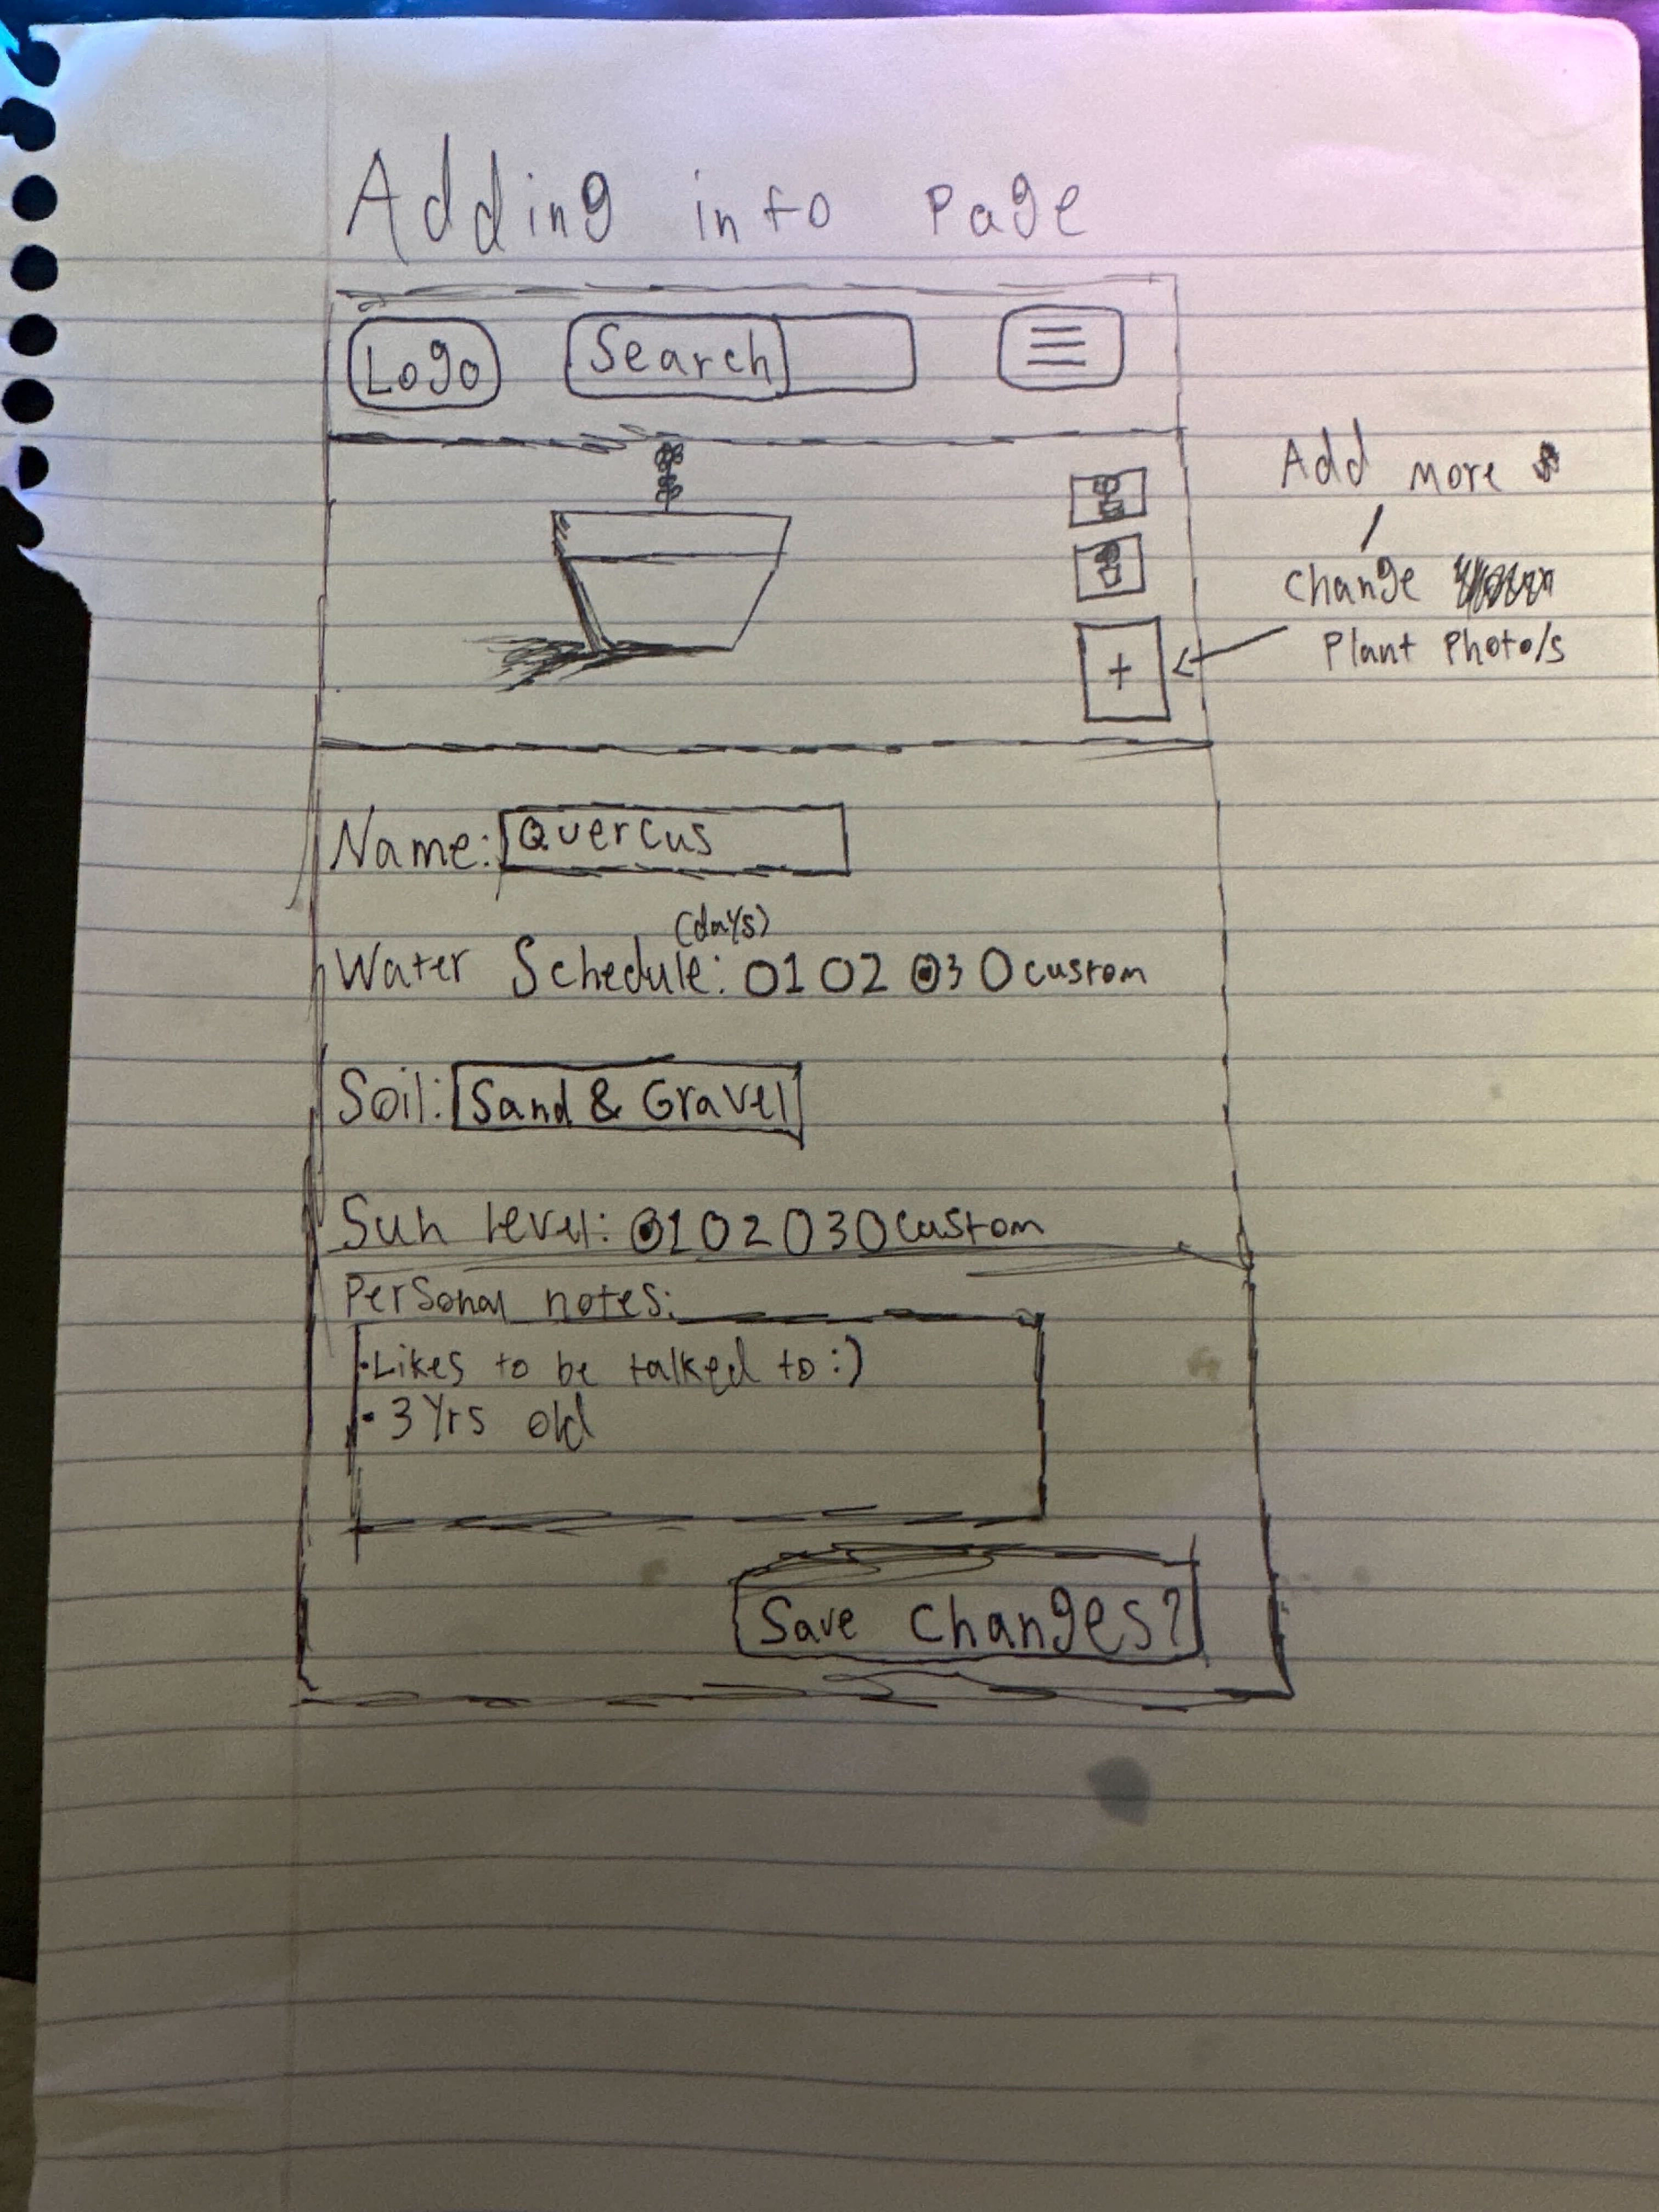 Adding info Page
Logo
Search
Add more
/
change
Plant Photo/s
+
Name: Quercus
(days)
Water Schedule: O1 O2 O3 O custom
Soil: Sand & Gravel
Sun level: O1 O2 O3 O custom
Personal notes:
• Likes to be talked to :)
• 3 Yrs old
Save Changes?